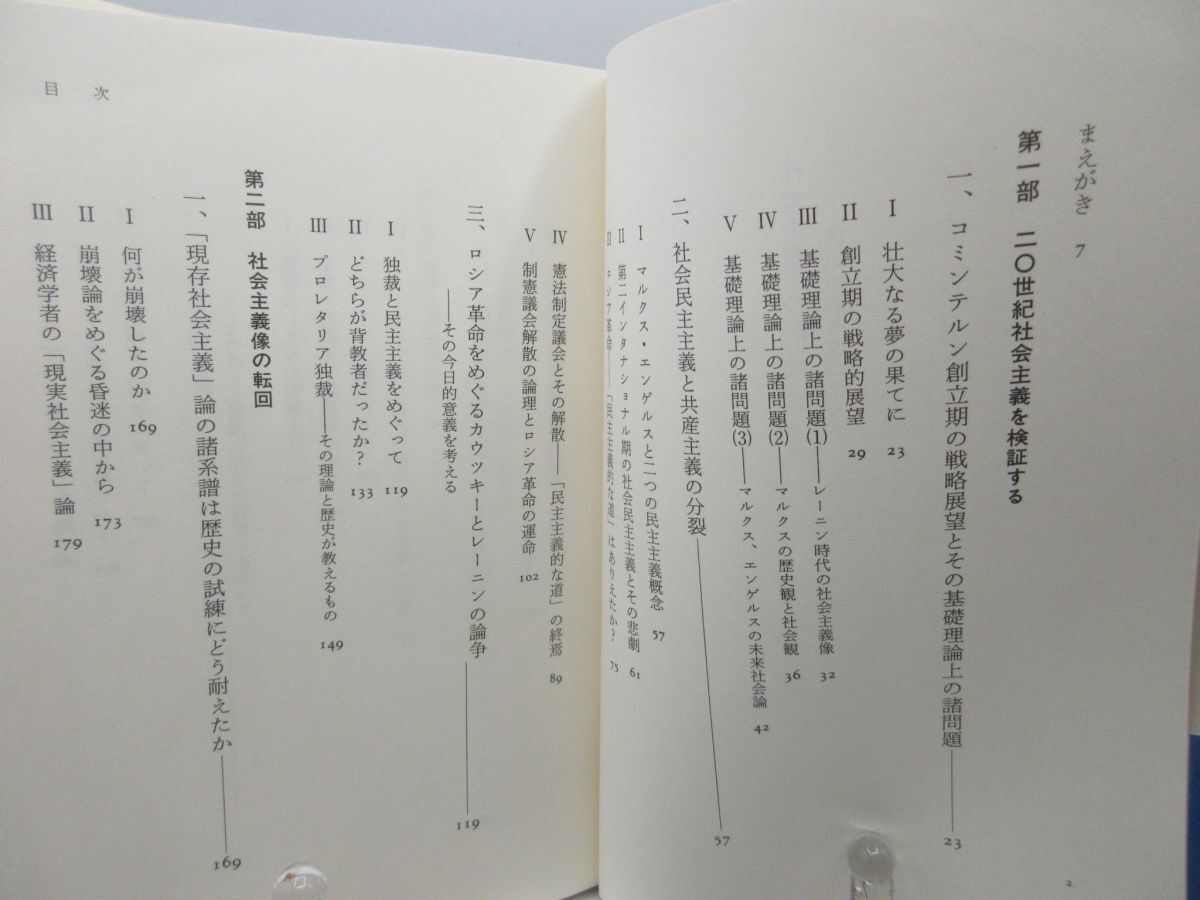 まえがき 7
第一部 二〇世紀社会主義を検証する
一、コミンテルン創立期の戦略展望とその基礎理論上の諸問題――23
Ⅰ 壮大なる夢の果てに 23
Ⅱ 創立期の戦略的展望 29
Ⅲ 基礎理論上の諸問題(1)――レーニン時代の社会主義像 32
Ⅳ 基礎理論上の諸問題(2)――マルクスの歴史観と社会観 36
Ⅴ 基礎理論上の諸問題(3)――マルクス、エンゲルスの未来社会論 42
二、社会民主主義と共産主義の分裂――57
Ⅰ マルクス・エンゲルスと二つの民主主義概念 57
Ⅱ 第二インタナショナル期の社会民主主義とその悲劇 61
Ⅲ ロシア革命――「民主主義的な道」はありえたか? 75
2
目次
Ⅳ 憲法制定議会とその解散――「民主主義的な道」の終焉 89
Ⅴ 制憲議会解散の論理とロシア革命の運命 102
三、ロシア革命をめぐるカウツキーとレーニンの論争――119
――その今日的意義を考える
Ⅰ 独裁と民主主義をめぐって 119
Ⅱ どちらが背教者だったか? 133
Ⅲ プロレタリア独裁――その理論と歴史が教えるもの 149
第二部 社会主義像の転回
一、「現存社会主義」論の諸系譜は歴史の試練にどう耐えたか――169
Ⅰ 何が崩壊したのか 169
Ⅱ 崩壊論をめぐる昏迷の中から 173
Ⅲ 経済学者の「現実社会主義」論 179